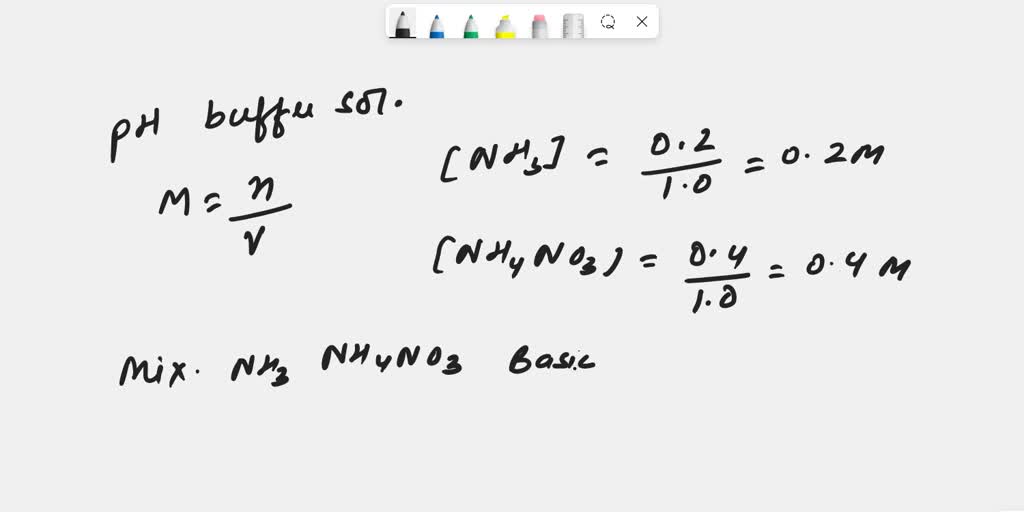 pH buffer sol.
M = n/V
[NH3] = 0.2/1.0 = 0.2 M
[NH4NO3) = 0.4/1.0 = 0.4 M
Mix. NH3 NH4NO3 Basic